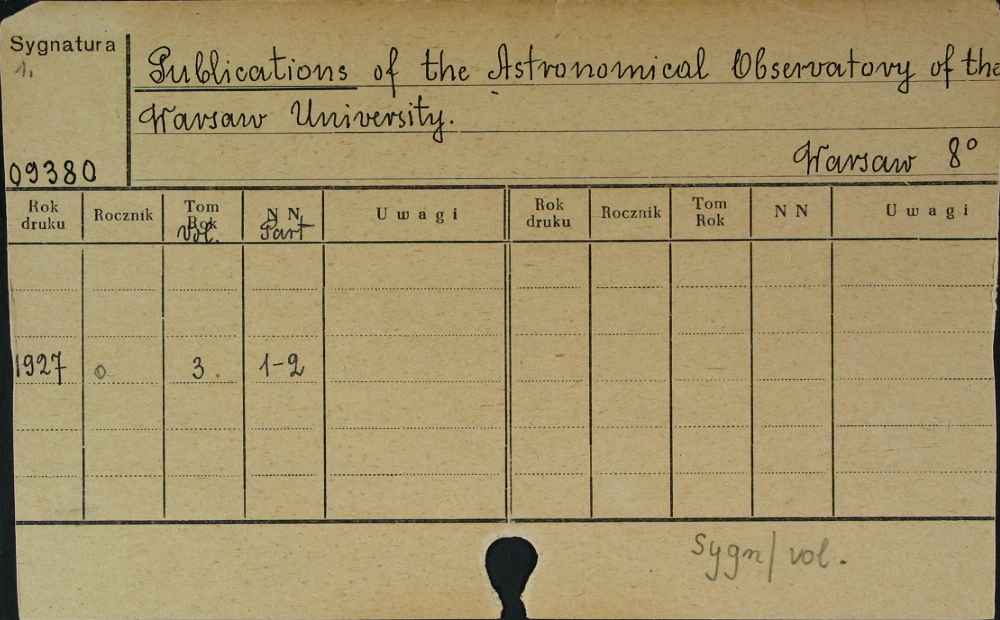 Sygnatura
1.
Publications of the Astronomical Observatory of the
Warsaw University.
Warsaw 8°
09380
Rok druku Rocznik Tom Rok Vol. N N Part Uwagi Rok druku Rocznik Tom Rok N N Uwagi
1927 0 3. 1-2
Sygn/vol.